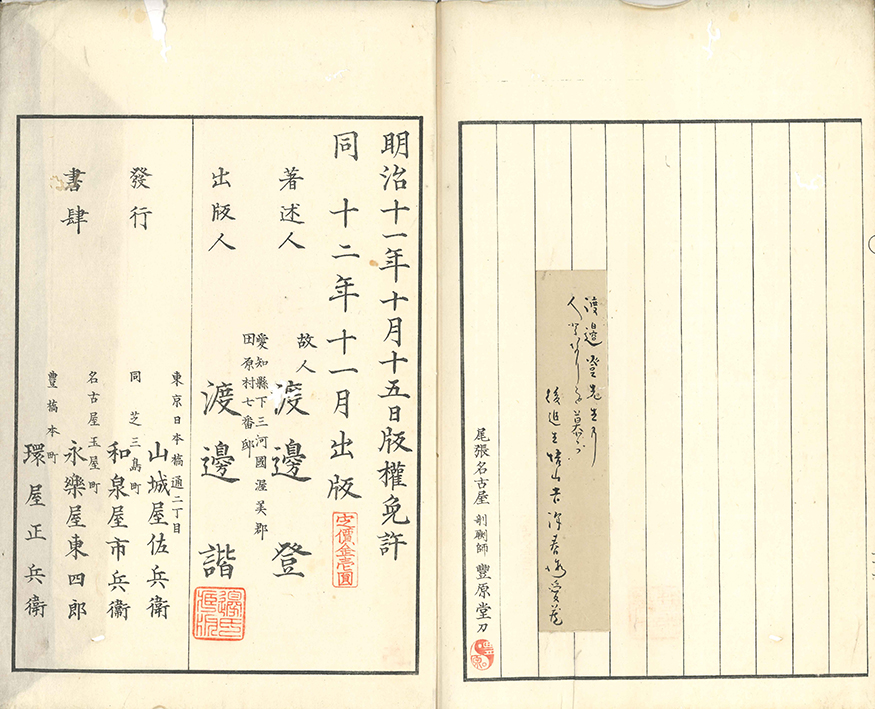 尾張名古屋 剞劂師 豐原堂刀
明治十一年十月十五日版權免許
同 十二年十一月出版
定價金壱圓
著述人 故人 渡邊登
愛知縣下三河國渥美郡
田原村七番邸
出版人 渡邊諧
發行
書肆
東京日本橋通二丁目
山城屋佐兵衛
同芝三島町
和泉屋市兵衞
名古屋玉屋町
永樂屋東四郎
豐橋本町
環屋正兵衛